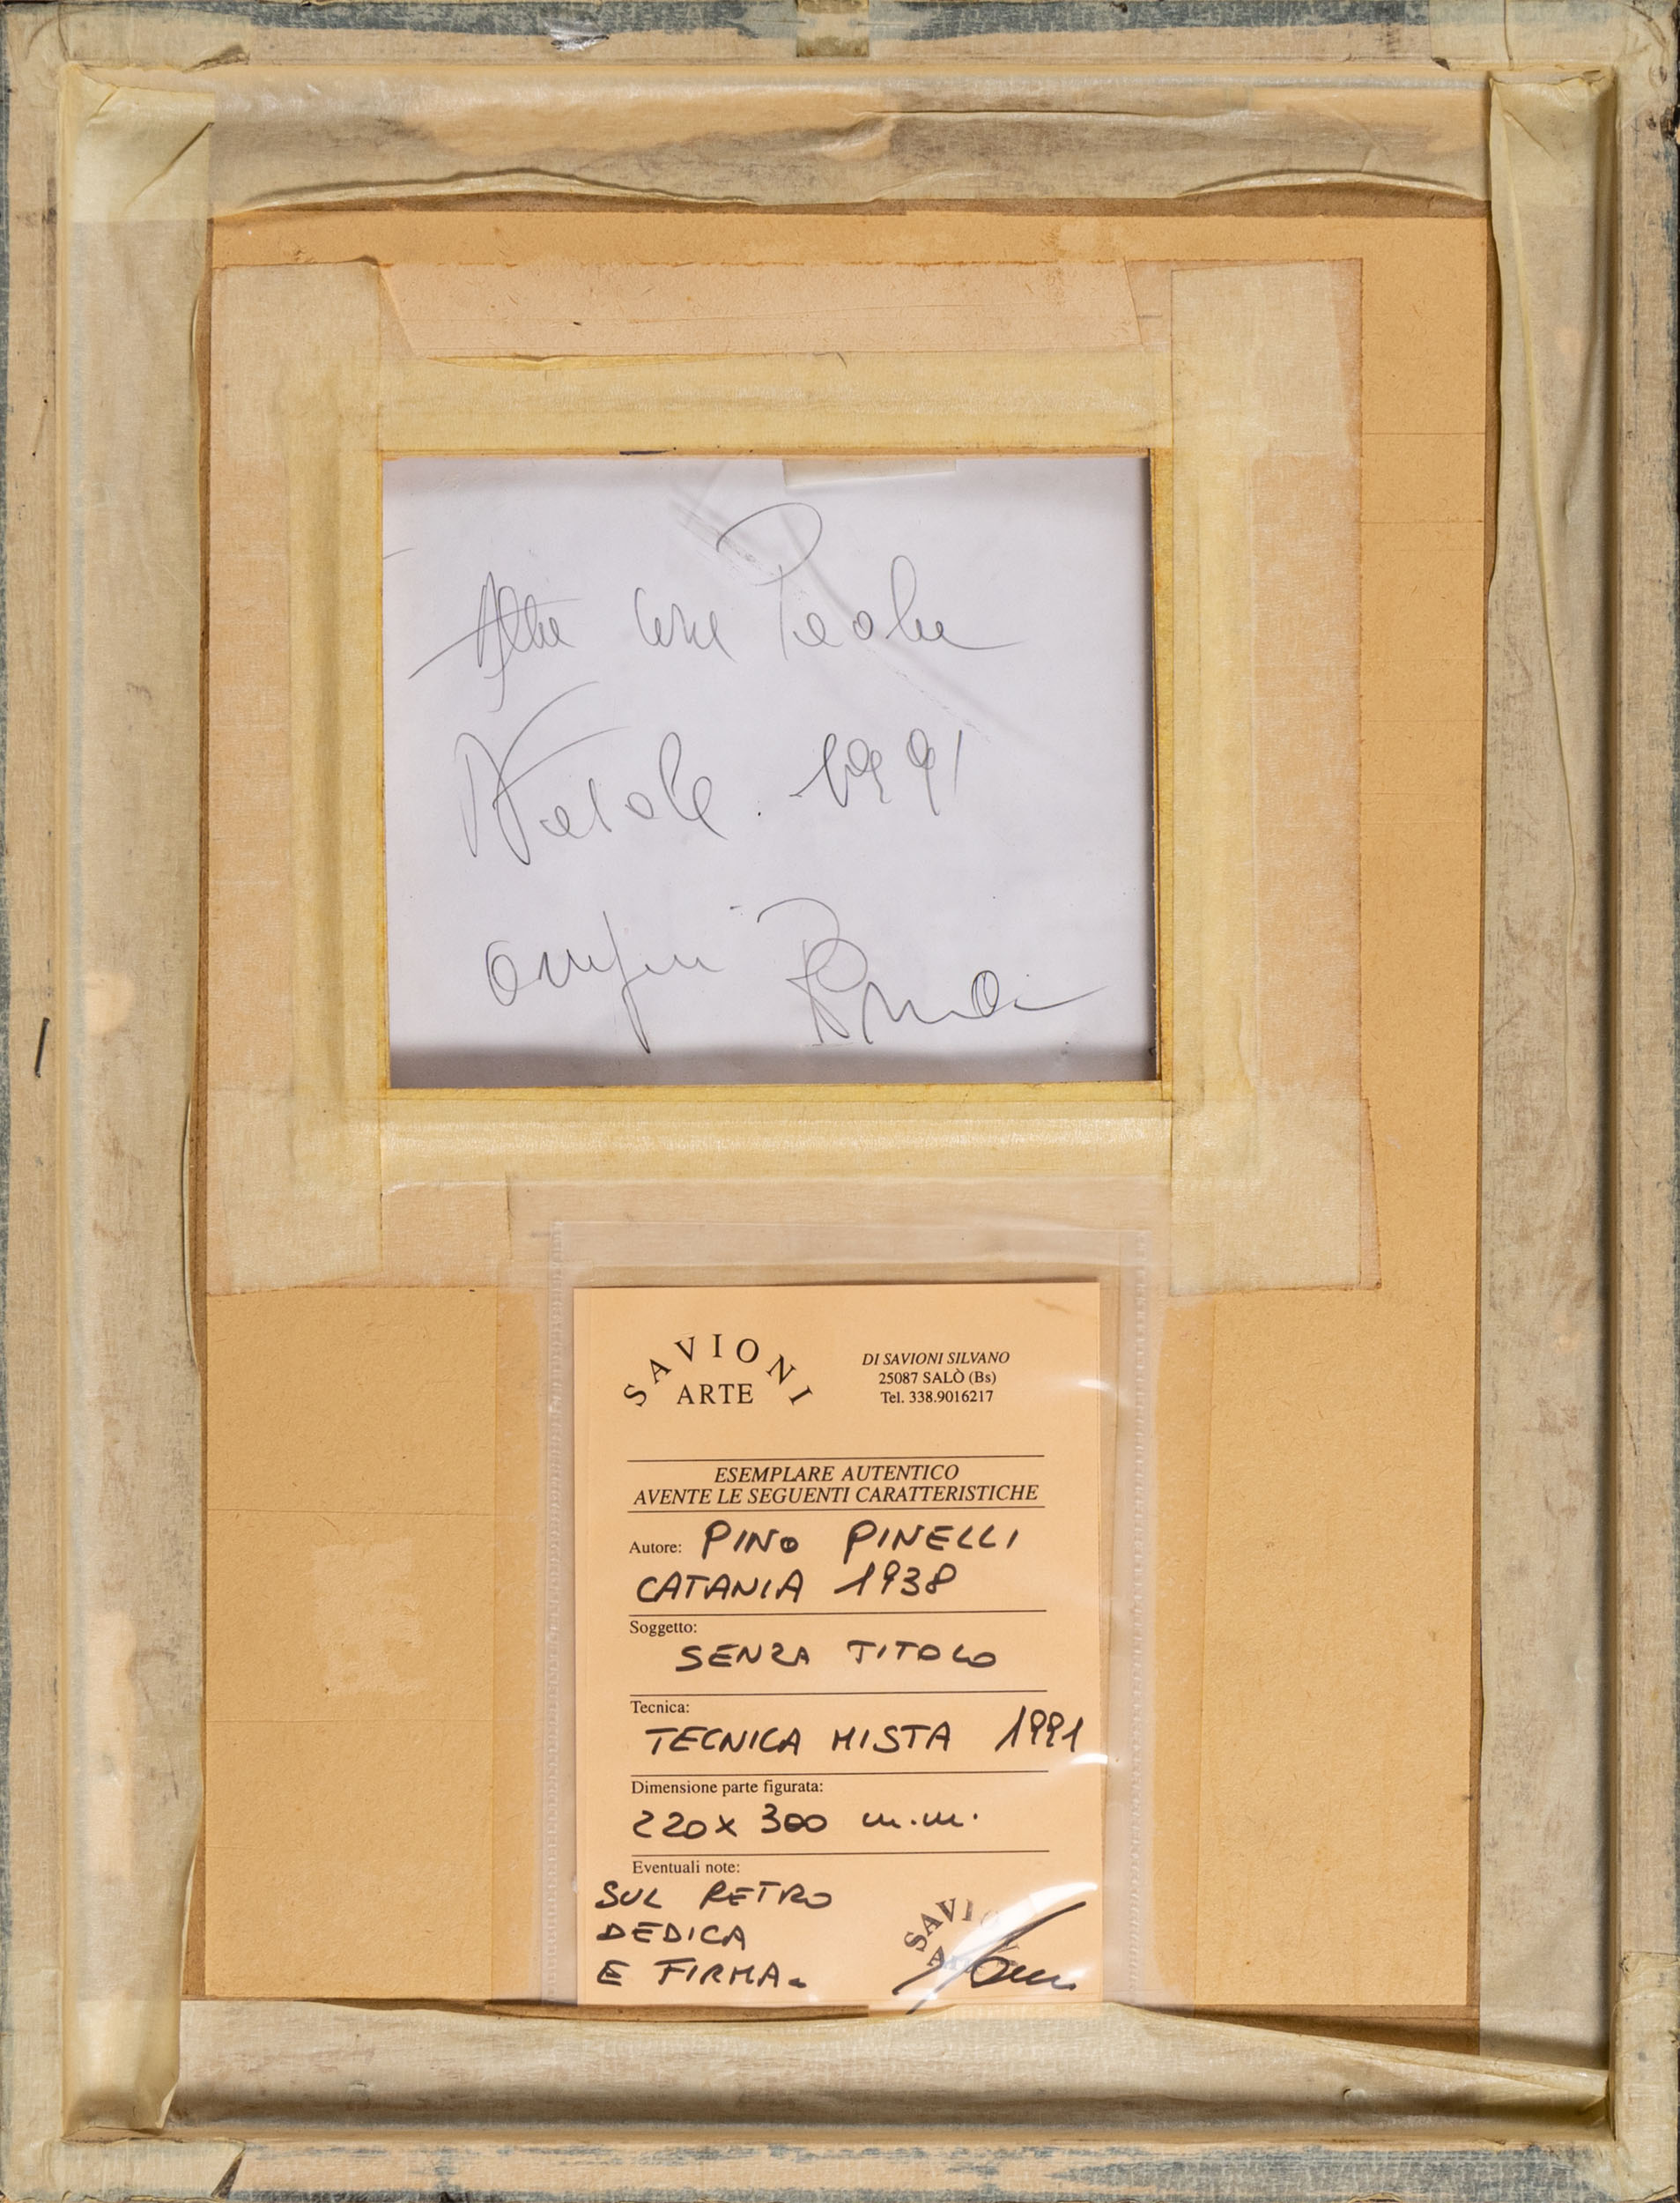 Alla cara Paola
Natale. 1991
auguri
SAVIONI
ARTE
DI SAVIONI SILVANO
25087 SALÒ (Bs)
Tel. 338.9016217
ESEMPLARE AUTENTICO
AVENTE LE SEGUENTI CARATTERISTICHE
Autore: PINO PINELLI
CATANIA 1938
Soggetto:
SENZA TITOLO
Tecnica:
TECNICA MISTA 1991
Dimensione parte figurata:
220x 300 m.m.
Eventuali note:
SUL RETRO
DEDICA
E FIRMA.